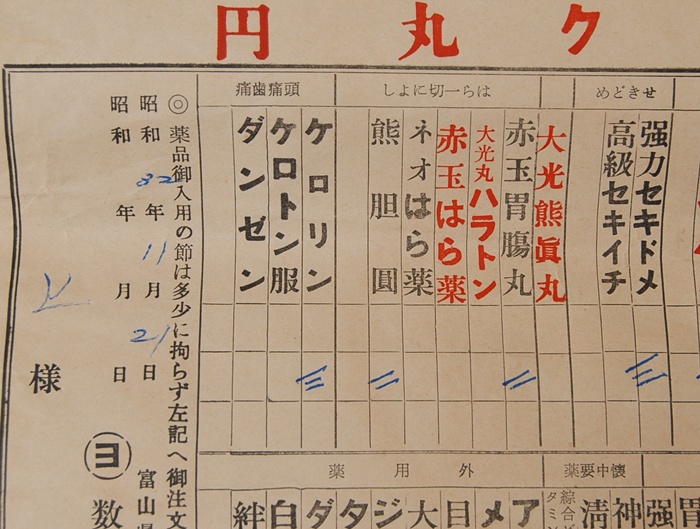 ク丸円
せきどめ
強力セキドメ
高級セキイチ
はら一切によし
大光熊眞丸
赤玉胃腸丸
大光丸ハラトン
赤玉はら薬
ネオはら薬
熊胆圓
頭痛歯痛
ケロリン
ケロトン服
ダンゼン
懐中要薬
胃
強
神
清
綜合
タミン
外用薬
ア
メ
目
大
ジ
タ
ダ
白
絆
◎薬品御入用の節は多少に拘らず左記へ御注文
富山県
昭和 年11月21日
昭和 年 月 日
ヨ
数
様